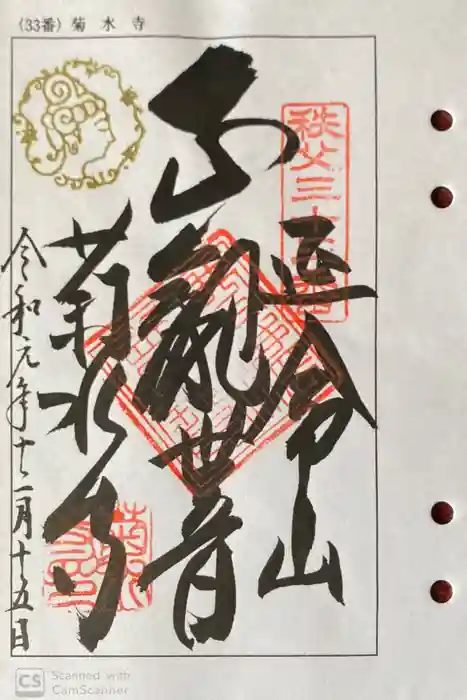 (33番) 菊水寺
秩父三十三番
延命山
正観世音
菊水寺
令和元年十二月十五日
CS Scanned with
CamScanner